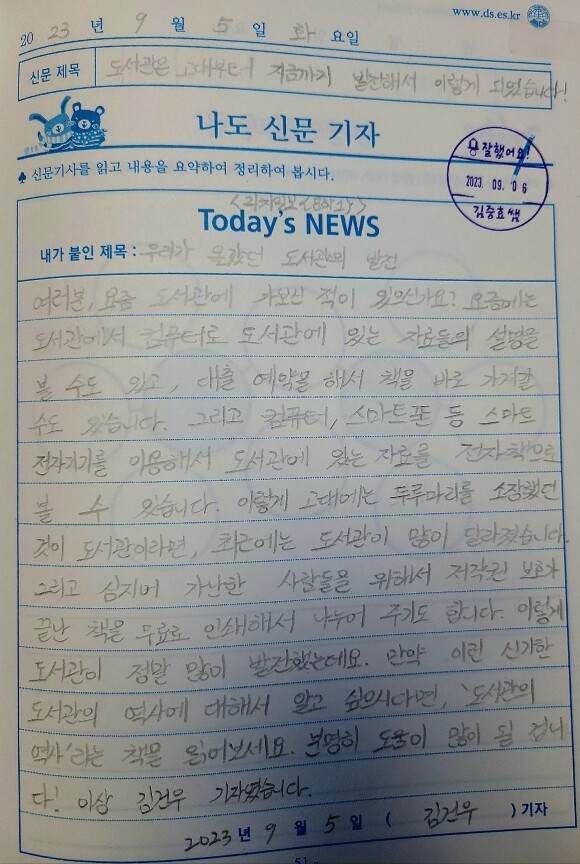 www.ds.es.kr
2023 년 9 월 5 일 화 요일
신문 제목 도서관은 고대부터 지금까지 발전해서 이렇게 되었습니다!
나도 신문 기자
♣ 신문기사를 읽고 내용을 요약하여 정리하여 봅시다.
참 잘했어요!
2023. 09. 06
김중호쌤
Today's NEWS
내가 붙인 제목 : 우리가 몰랐던 도서관의 발전
여러분, 요즘 도서관에 가보신 적이 있으신가요? 요즘에는
도서관에서 컴퓨터로 도서관에 있는 자료들의 설명을
볼 수도 있고, 대출 예약을 해서 책을 바로 가져갈
수도 있습니다. 그리고 컴퓨터, 스마트폰 등 스마트
전자기기를 이용해서 도서관에 있는 자료를 전자책으로
볼 수 있습니다. 이렇게 고대에는 두루마리를 소장했던
것이 도서관이라면, 최근에는 도서관이 많이 달라졌습니다.
그리고 심지어 가난한 사람들을 위해서 저작권 보호가
끝난 책을 무료로 인쇄해서 나누어 주기도 합니다. 이렇게
도서관이 정말 많이 발전했는데요. 만약 이런 신기한
도서관의 역사에 대해서 알고 싶으시다면, '도서관의
역사'라는 책을 읽어보세요. 분명히 도움이 많이 될 겁니
다! 이상 김건우 기자였습니다.
2023 년 9 월 5 일 ( 김건우 ) 기자
51